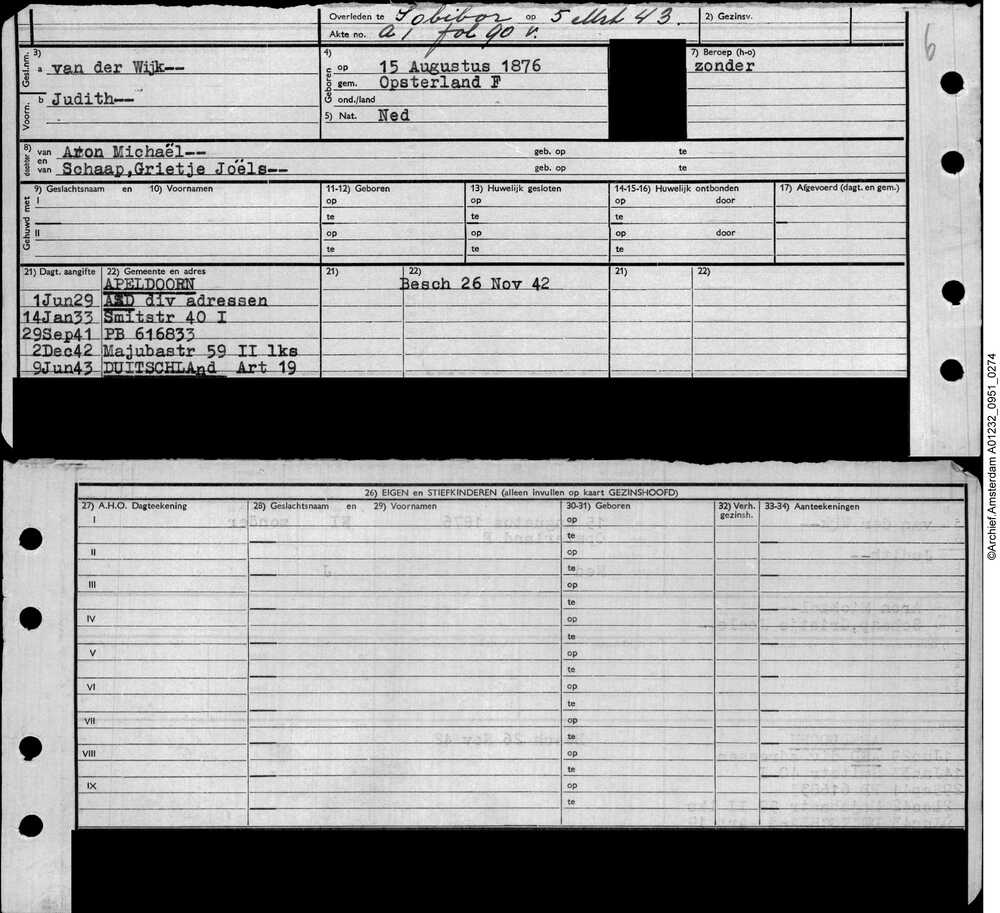 Overleden te Sobibor op 5 Mrt 43. 2) Gezinsv.
Akte no. A 1 fol 90 v.
6
3) Gesl.nm. a van der Wijk--
Voorn. b Judith--
4) Geboren op 15 Augustus 1876
gem. Opsterland F
ond./land
5) Nat. Ned
7) Beroep (h-o)
zonder
8) dochter van Aron Michaël-- geb. op te
en van Schaap,Grietje Joëls-- geb. op te
Gehuwd met 9) Geslachtsnaam en 10) Voornamen 11-12) Geboren 13) Huwelijk gesloten 14-15-16) Huwelijk ontbonden 17) Afgevoerd (dagt. en gem.)
I op op op door
te te te
II op op op door
te te te
21) Dagt. aangifte 22) Gemeente en adres 21) 22) 21) 22)
APELDOORN Besch 26 Nov 42
1Jun29 ASD div adressen
14Jan33 Smitstr 40 I
29Sep41 PB 616833
2Dec42 Majubastr 59 II lks
9Jun43 DUITSCHLAnd Art 19
26) EIGEN en STIEFKINDEREN (alleen invullen op kaart GEZINSHOOFD)
27) A.H.O. Dagteekening 28) Geslachtsnaam en 29) Voornamen 30-31) Geboren 32) Verh. gezinsh. 33-34) Aanteekeningen
I op
te
II op
te
III op
te
IV op
te
V op
te
VI op
te
VII op
te
VIII op
te
IX op
te
©Archief.Amsterdam A01232_0951_0274